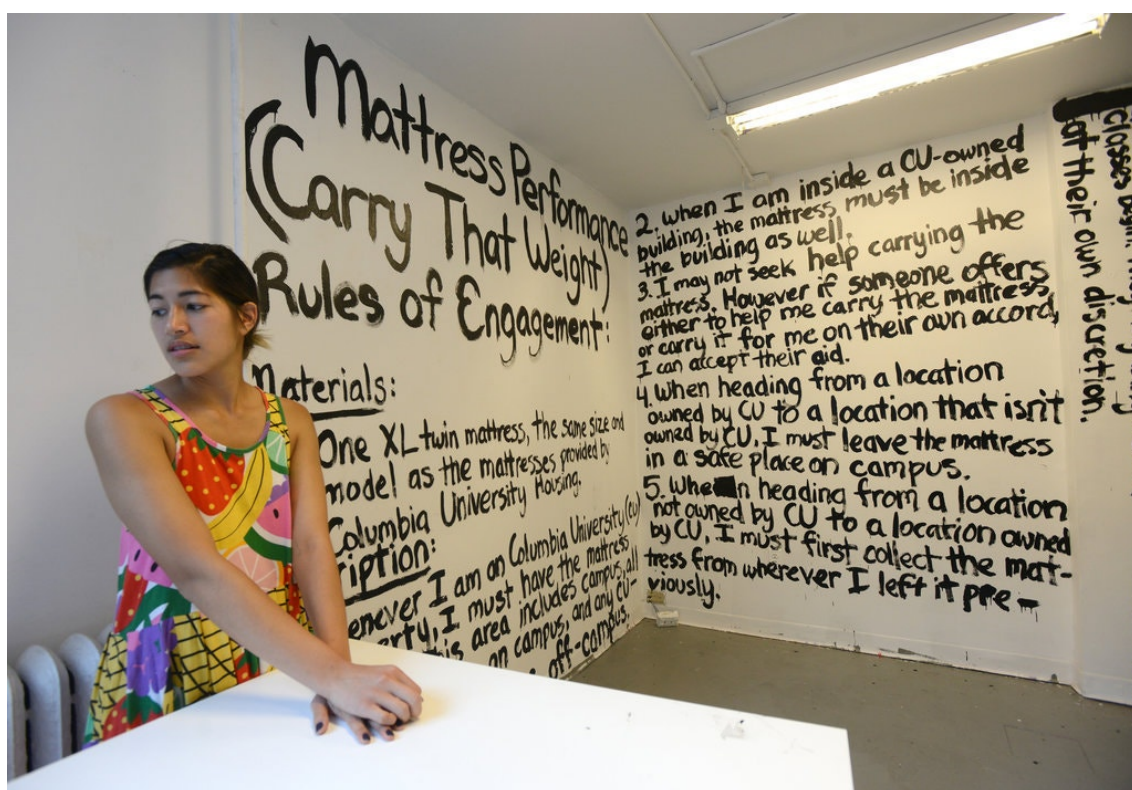 Mattress Performance
(Carry That Weight)
Rules of Engagement:
Materials:
One XL twin mattress, the same size and
model as the mattresses provided by
Columbia University Housing.
I am on Columbia University (CU)
I must have the mattress
this area includes campus, all
on campus, and any CU-
off-campus.
2. When I am inside a CU-owned
building, the mattress must be inside
the building as well.
3. I may not seek help carrying the
mattress. However if someone offers
either to help me carry the mattress,
or carry it for me on their own accord,
I can accept their aid.
4. When heading from a location
owned by CU to a location that isn't
owned by CU, I must leave the mattress
in a safe place on campus.
5. When heading from a location
not owned by CU to a location owned
by CU, I must first collect the mat-
tress from wherever I left it pre-
viously.
classes begin.
at their own discretion.